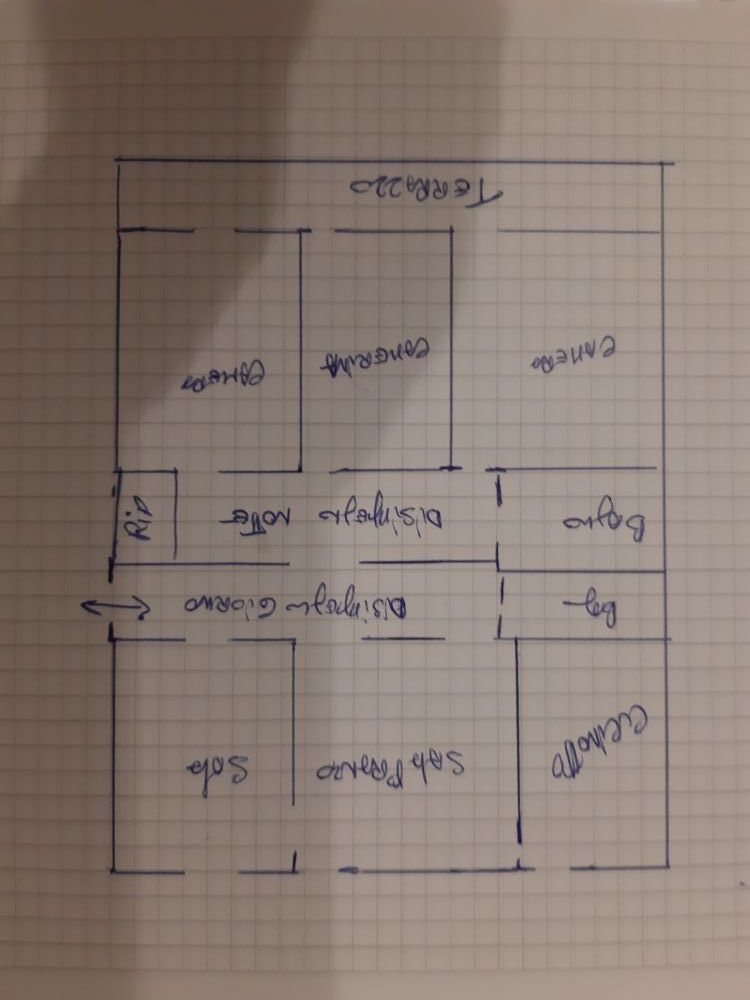 Cucinotto
Sala PRANZO
Sala
Bag
Disimpegno Giorno
Bagno
Disimpegno NOTTE
Rip
CAMERA
CAMERINA
CAMERA
TERRAZZO